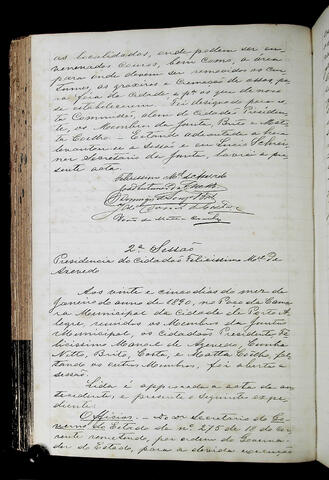 as localidades, onde podem ser en-
venenados couros, bem como, a area
para onde devem ser removidos os cur-
tumes, as graxeiras e cremação de ossos, pa-
ra fóra da cidade, e pª os que de novo
se estabelecerem. Foi designado para es-
ta Commissão, alem do Cidadão Presiden-
te, os Membros da Junta, Brito e Mat-
ta Coelho. Estando adeantada a hora
levantou-se a sessão e eu Luiz
Secretario da Junta, lavrei a pre-
sente acta.
Felicissimo Ml. de Azevedo
2ª Sessão
Presidencia do Cidadão Felicissimo Mel. de
Azevedo
Aos vinte e cinco dias do mez de
Janeiro do anno de 1890, no Paço da Cama-
ra Municipal da Cidade de Porto A-
legre, reunidos os Membros da Junta
Municipal, os Cidadãos Presidente Fe-
licissimo Manoel de Azevedo, Cunha
Netto, Brito, Costa, e Matta Coelho, fal-
tando os outros Membros, foi aberta a
sessão.
Lida e approvada a acta da an-
tecedente, é presente o seguinte expe-
diente:
Officios: Do Secretario do Go-
verno do Estado de nº 275 de 18 do cor-
rente remettendo, por ordem do Governa-
dor do Estado, para a devida execução